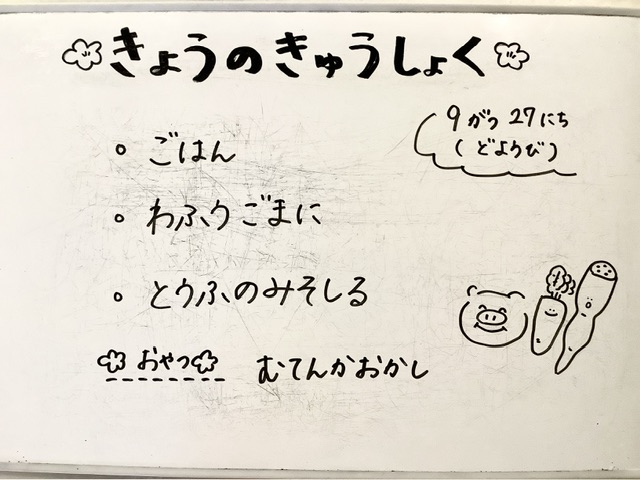 きょうのきゅうしょく
9がつ 27にち
(どようび)
。ごはん
。わふうごまに
。とうふのみそしる
おやつ むてんかおかし